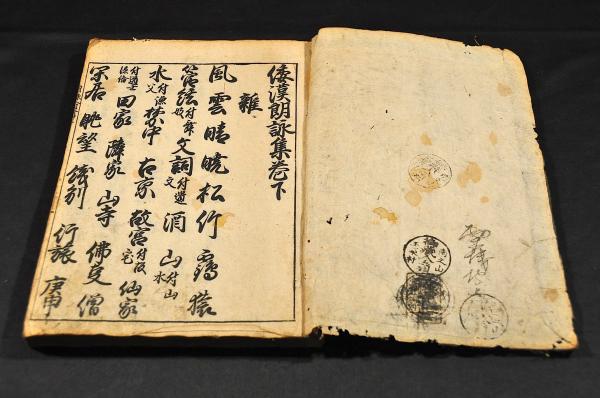 倭漢朗詠集巻下
雜
風 雲 晴 曉 松 竹 鶴 猿
管絃付舞妓 文詞付遺文 酒 山付山水
水付漁父 禁中 古京 故宮付故宅 仙家
付道士隠倫 田家 隣家 山寺 佛事 僧
閑居 眺望 餞別 行旅 庚申